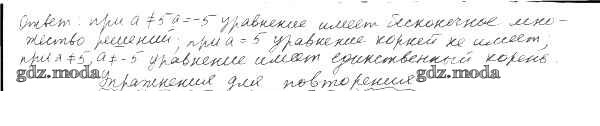 Ответ: при a ≠ 5 a = -5 уравнение имеет бесконечное мно-
жество решений; при a = 5 уравнение корней не имеет;
при a ≠ 5, a ≠ -5 уравнение имеет единственный корень.
gdz.moda gdz.moda
Упражнения для повторения